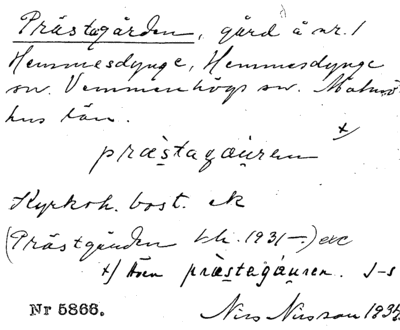 Prästagården, gård å nr. 1
Hemmesdynge, Hemmesdynge
sn. Vemmenhögs sn. Malmö-
hus län.
præstagauren x)
Kyrkoh. bost. ek
(Prästgården kh. 1931-.) exc
x) Även præstagauren. J-s
Nr 5866.
Nils Nilsson 1935.